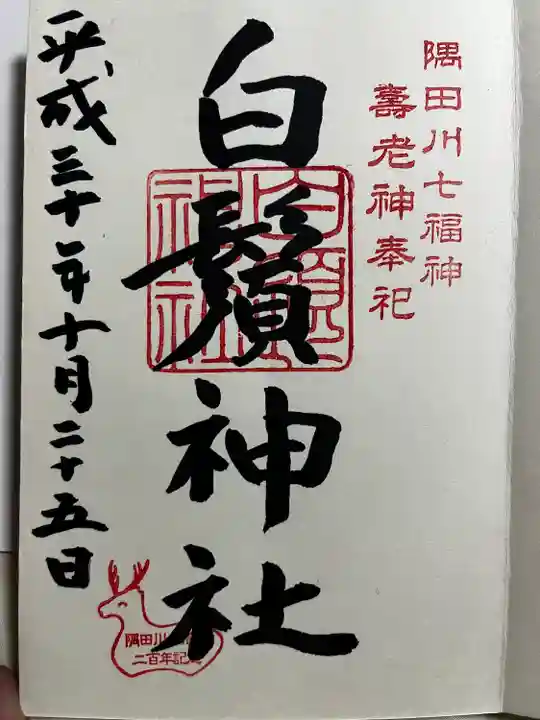 隅田川七福神
壽老神奉祀
白鬚神社
平成三十年十月二十五日
隅田川
二百年記